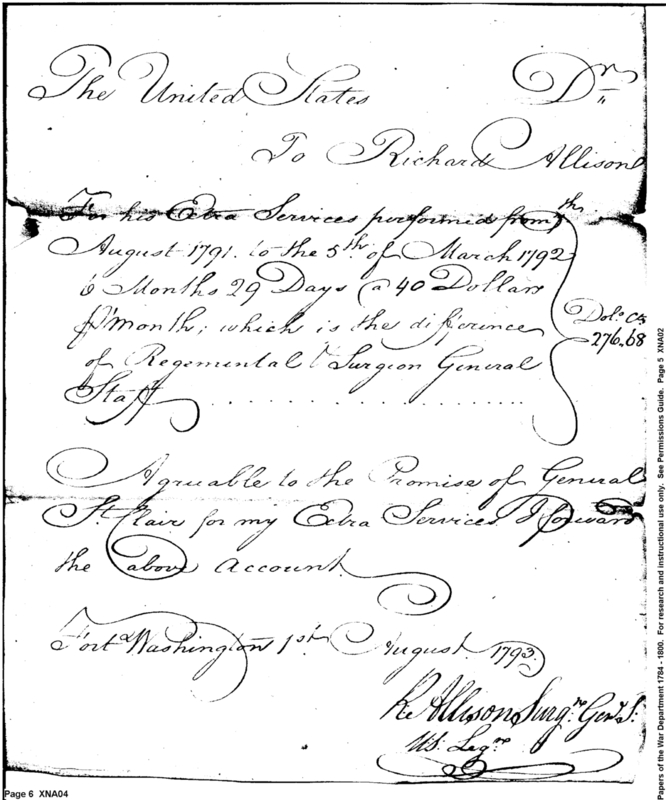 The United States Dr
To Richard Allison
For his Extra Services performed from 7th
August 1791. to the 5th. of March 1792
6 Months 29 Days @ 40 Dollars
pr month; which is the difference
of Regemental & Surgeon General
Staff . . . . . . . . . . . . . . . .
Dols. Cts
276.68
Agruable to the Promise of General
St. Clair for my Extra Services I forward
the above account.
Fort Washington 1st. August. 1793.
R. Allison Surgn. Genl. S.
US. Legn
Page 6 XNA04
Papers of the War Department 1784 - 1800. For research and instructional use only. See Permissions Guide. Page 5 XNA02